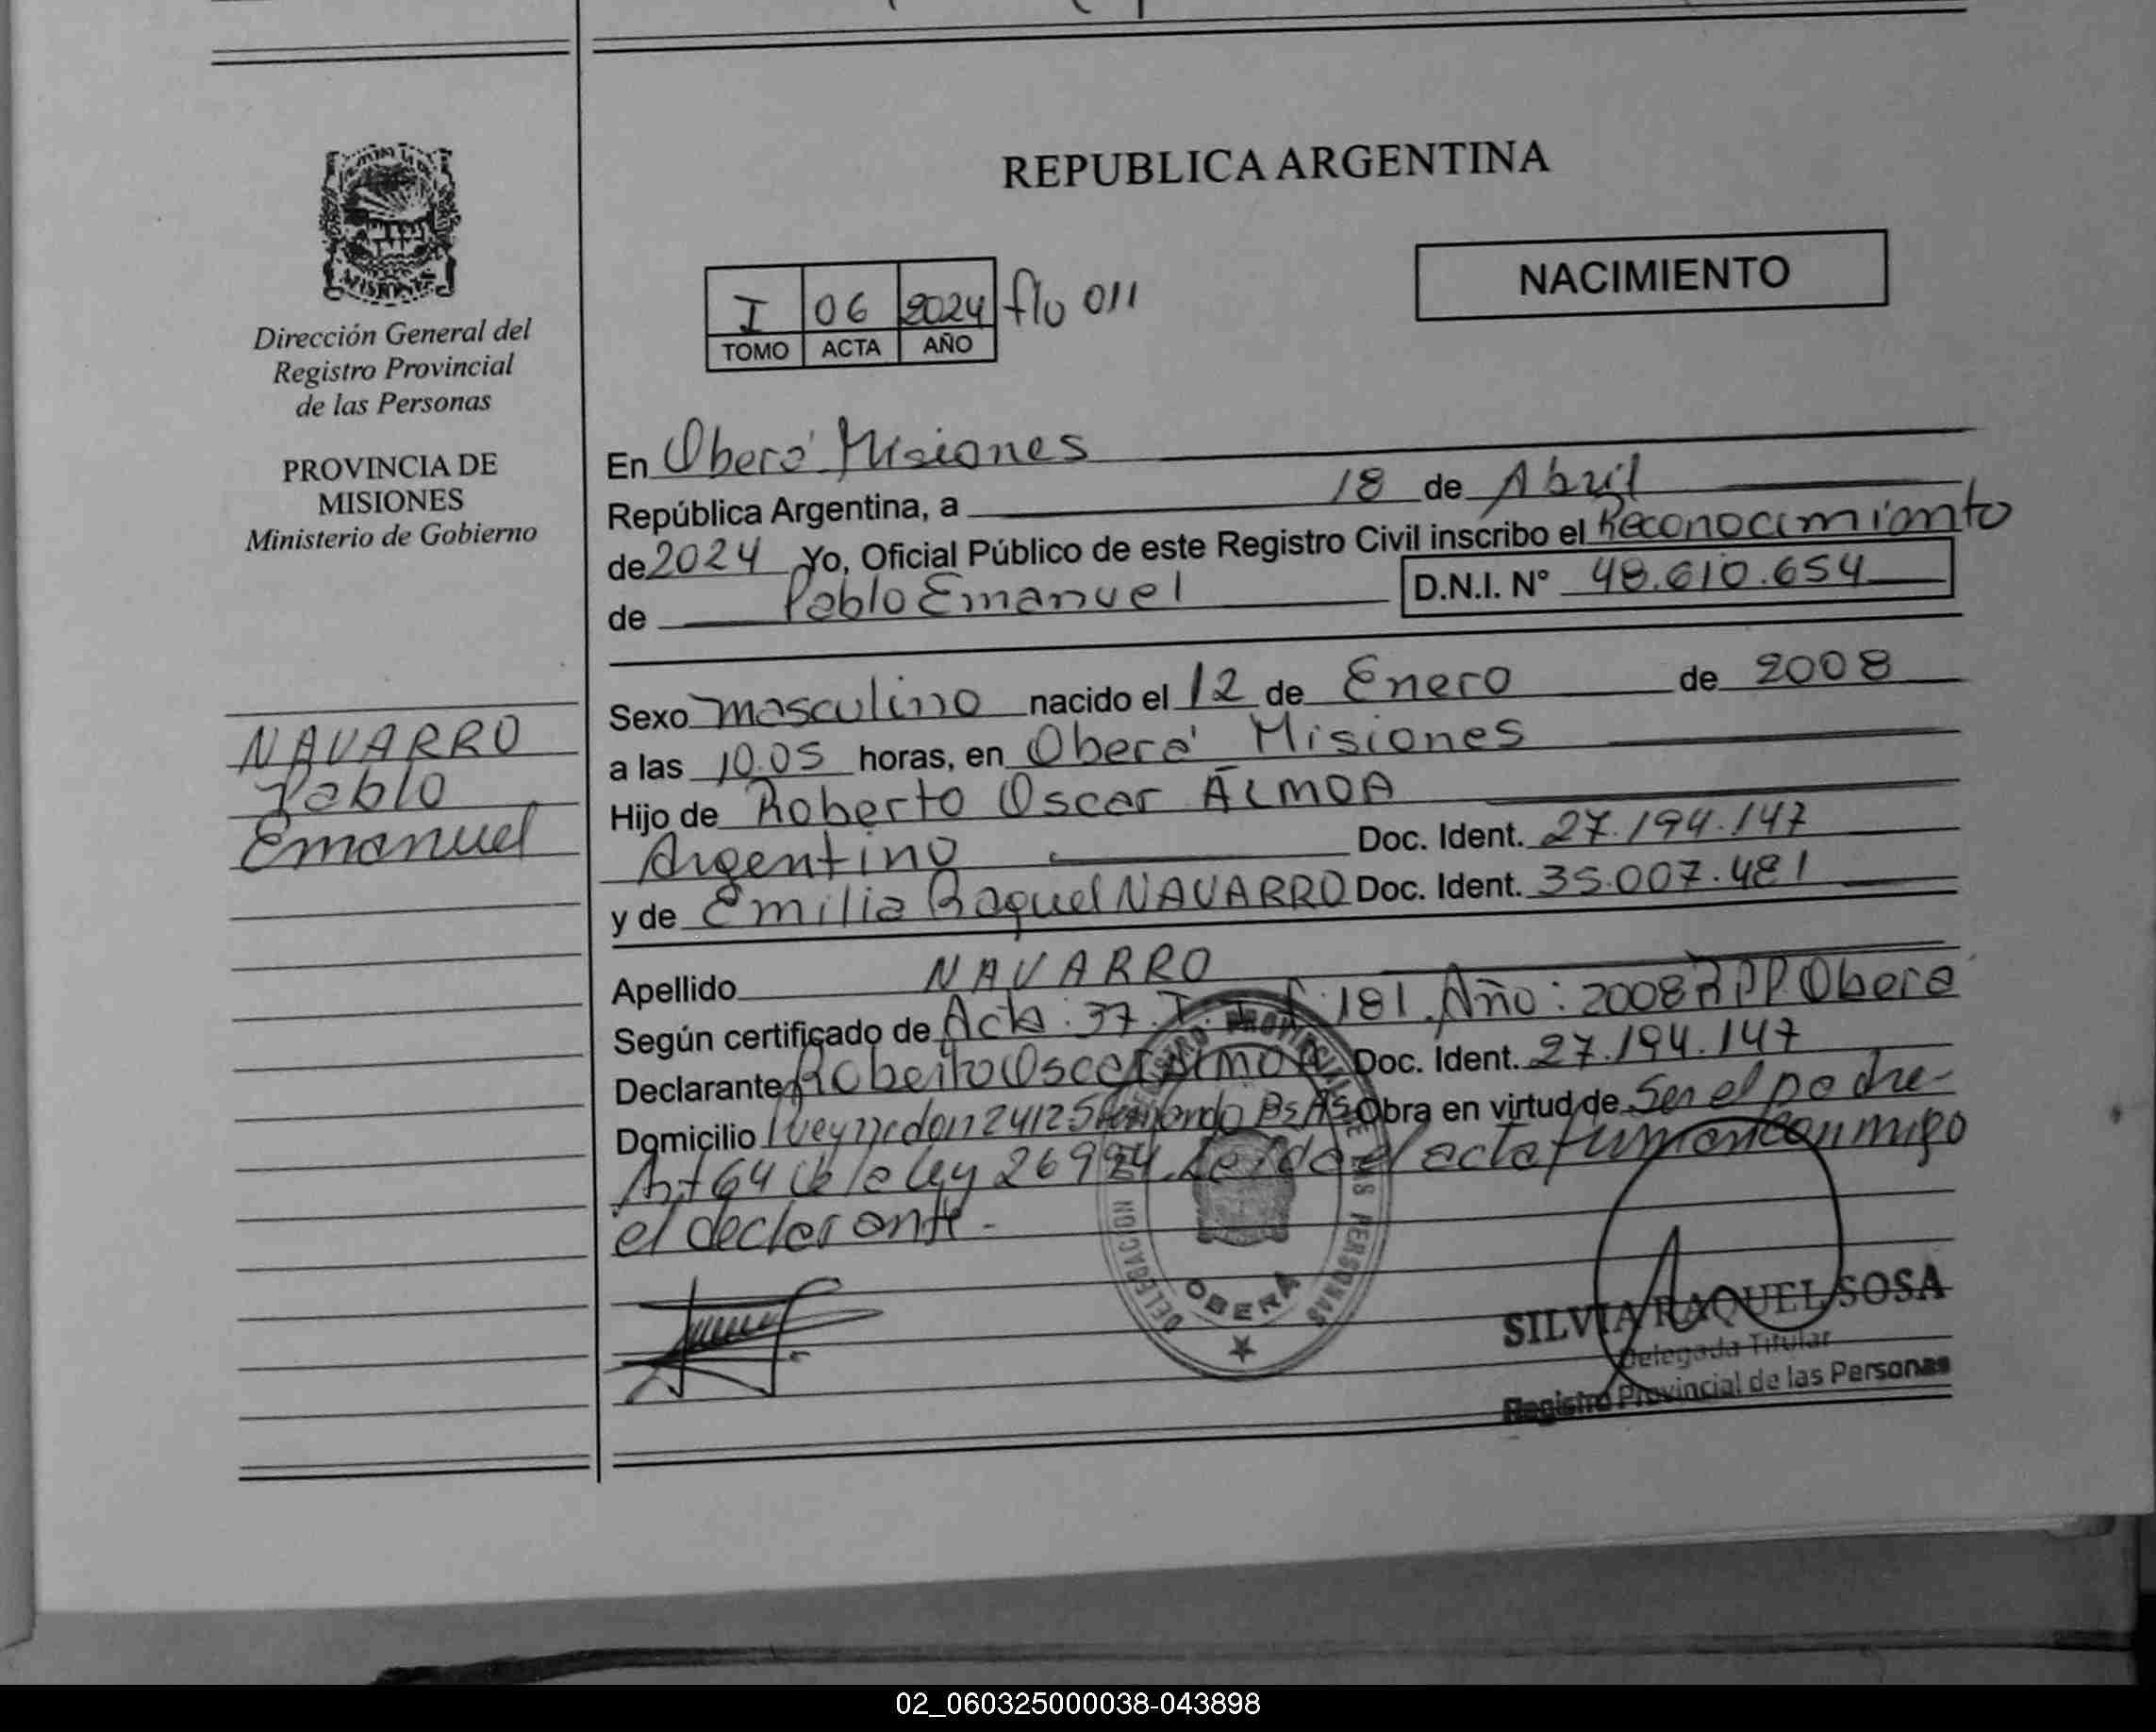 Dirección General del
Registro Provincial
de las Personas
PROVINCIA DE
MISIONES
Ministerio de Gobierno
NAVARRO
Pablo
Emanuel
REPUBLICA ARGENTINA
NACIMIENTO
I 06 2024 flo 011
TOMO ACTA AÑO
En Oberá Misiones
República Argentina, a 18 de Abril
de 2024 Yo, Oficial Público de este Registro Civil inscribo el Reconocimiento
de Pablo Emanuel D.N.I. N° 48.610.654
Sexo masculino nacido el 12 de Enero de 2008
a las 10.05 horas, en Oberá Misiones
Hijo de Roberto Oscar ALMOA
Argentino Doc. Ident. 27.194.147
y de Emilia Raquel NAVARRO Doc. Ident. 35.007.481
Apellido NAVARRO
Según certificado de Acta: 37. T. I F: 181. Año: 2008 RPP. Oberá
Declarante Roberto Oscar Almoa Doc. Ident. 27.194.147
Domicilio Pueyrredon 2412 Bs As Obra en virtud de Ser el padre
Art 64 de la ley 26994. Leída el acta firman conmigo
el declarante.-
REGISTRO PROVINCIAL DE LAS PERSONAS
DELEGACION
OBERA
SILVIA RAQUEL SOSA
Delegada Titular
Registro Provincial de las Personas
02_060325000038-043898